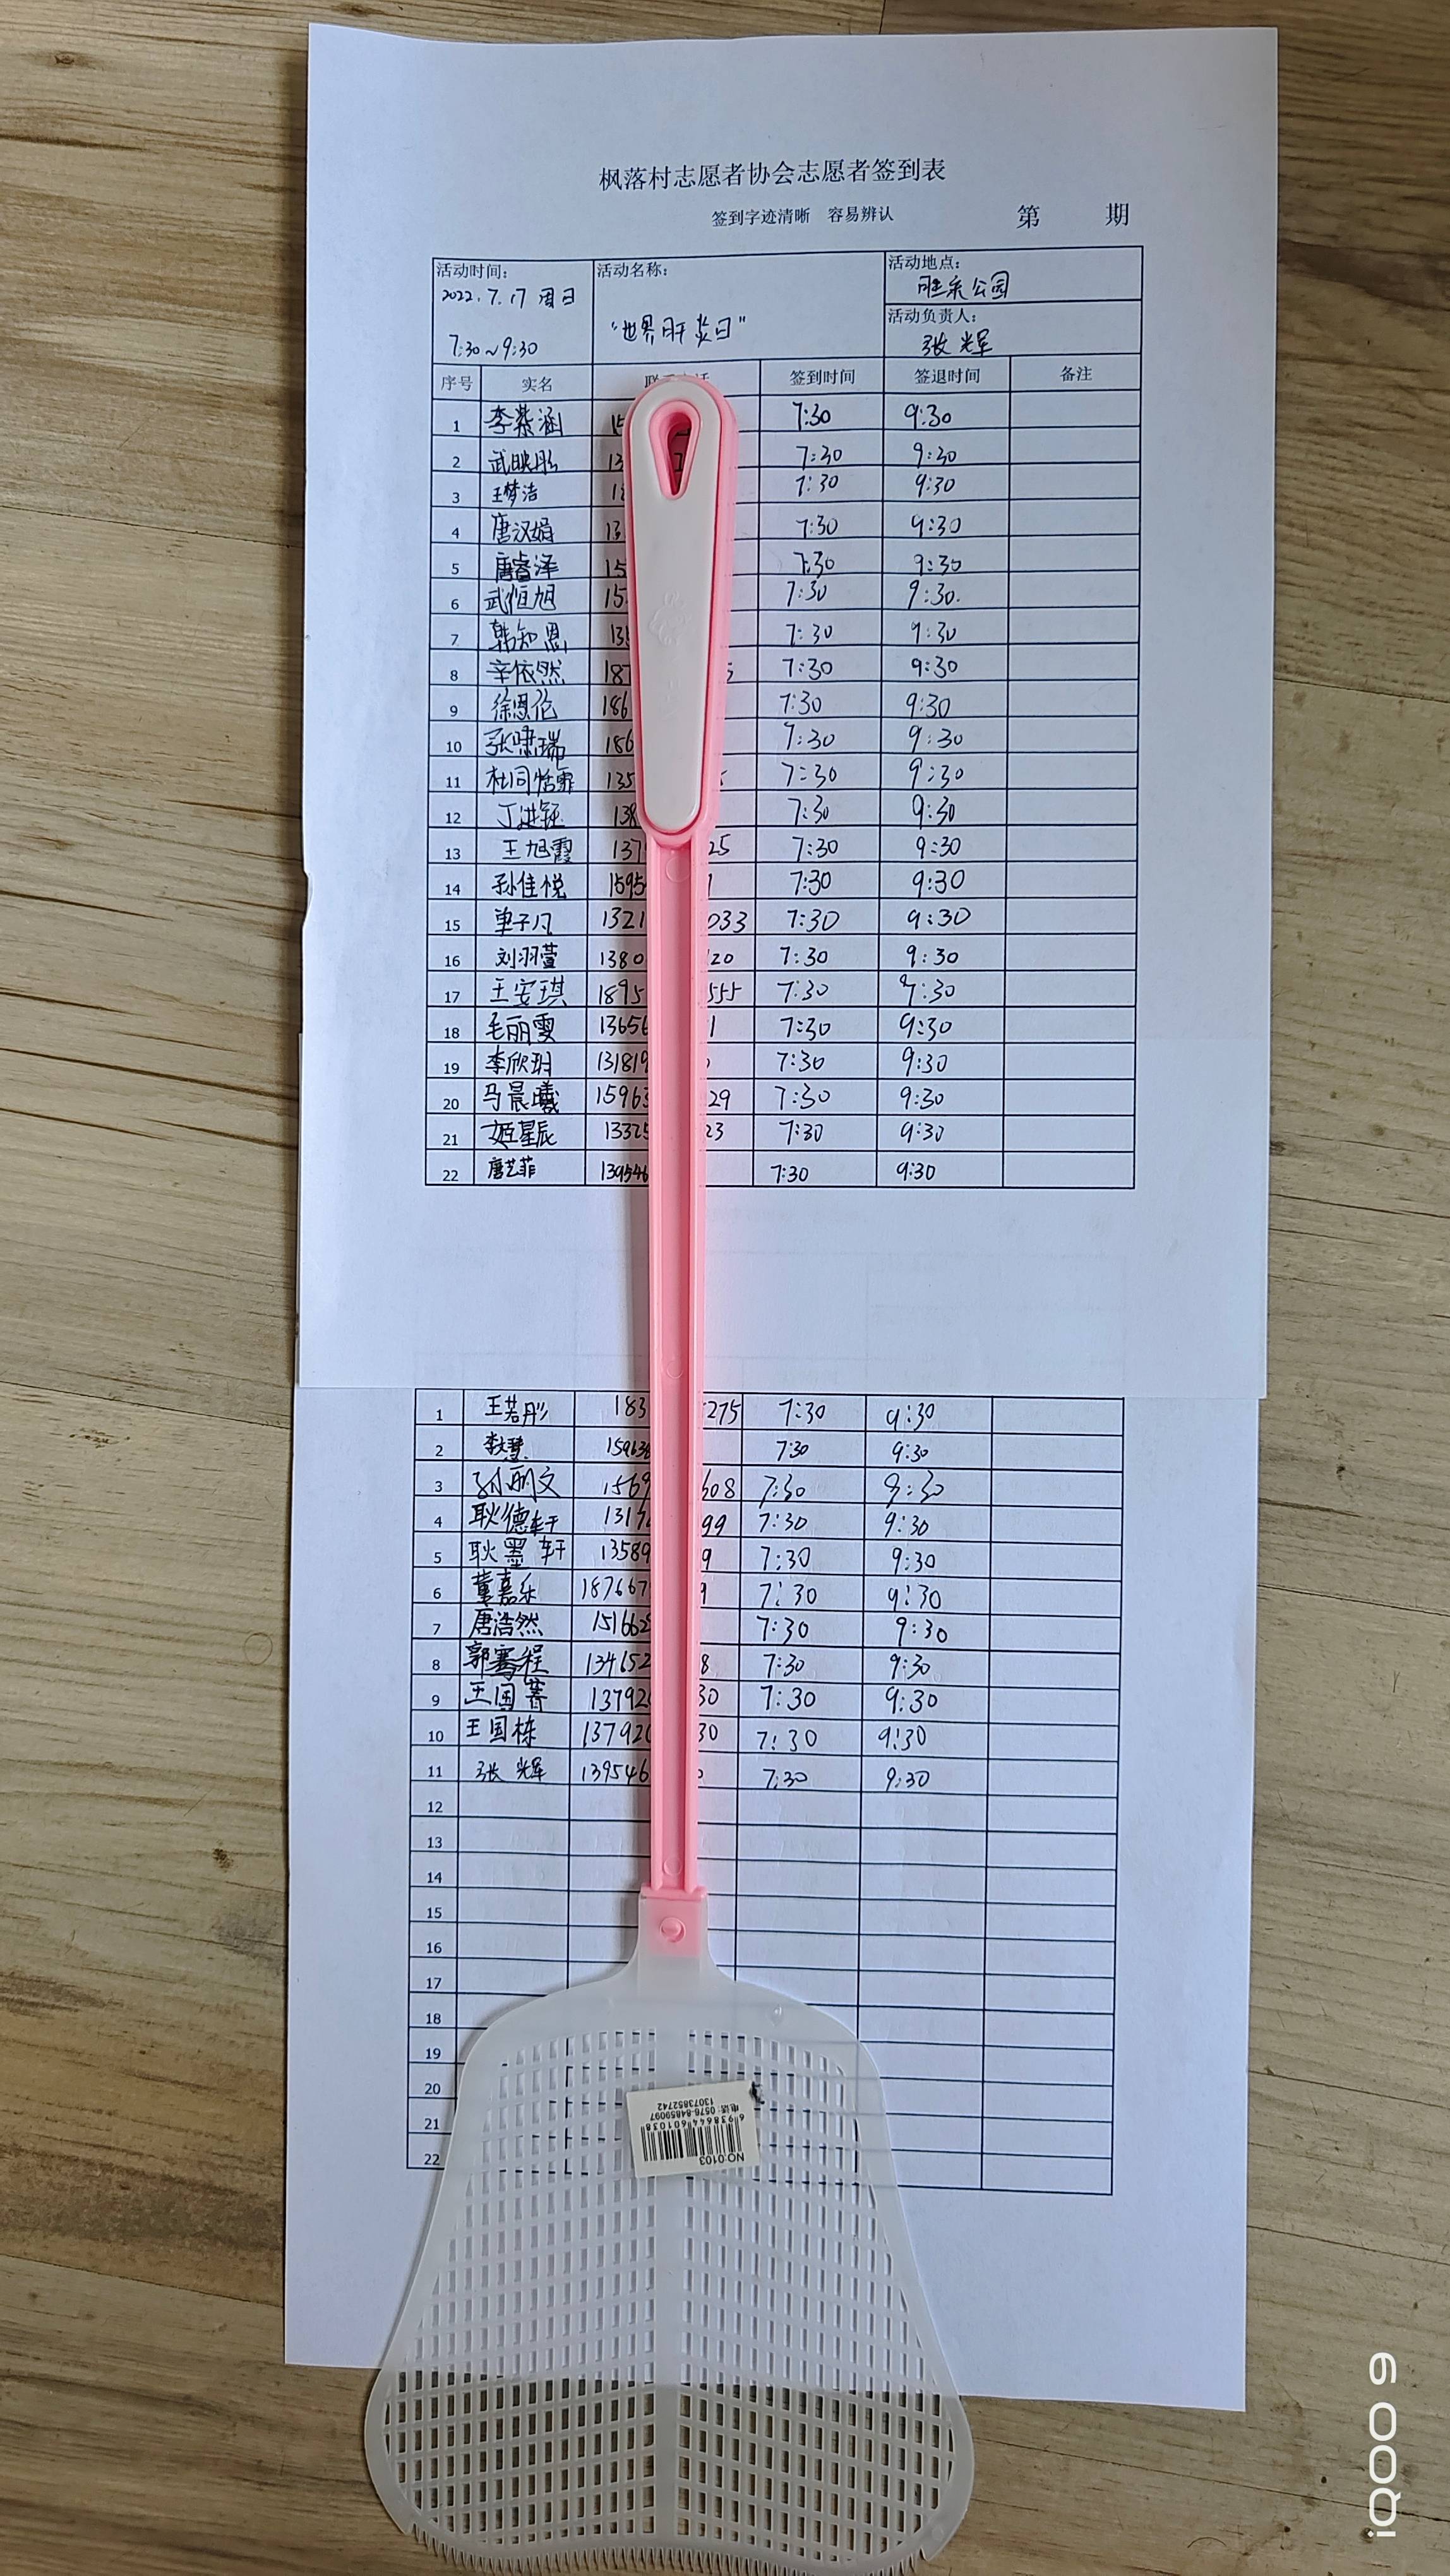 枫落村志愿者协会志愿者签到表
签到字迹清晰 容易辨认 第 期
活动时间: 2022.7.17 周日 7:30~9:30
活动名称: "世界肝炎日"
活动地点: 胜泉公园
活动负责人: 张光军
序号 实名 签到时间 签退时间 备注
1 李紫涵 15 7:30 9:30
2 武映彤 13 7:30 9:30
3 王梦洁 7:30 9:30
4 唐汉娟 13 7:30 9:30
5 唐睿泽 15 7:30 9:30
6 武恒旭 15 7:30 9:30.
7 韩知恩 13 7:30 9:30
8 辛依然 187 7:30 9:30
9 徐恩伦 186 7:30 9:30
10 张啸瑞 186 7:30 9:30
11 杜同恬霏 135 7:30 9:30
12 丁进钰 138 7:30 9:30
13 王旭霞 137 25 7:30 9:30
14 孙佳悦 1595 1 7:30 9:30
15 单子凡 1321 033 7:30 9:30
16 刘羽萱 1380 120 7:30 9:30
17 王安琪 1895 555 7:30 9:30
18 毛丽雯 13656 1 7:30 9:30
19 李欣玥 131819 7:30 9:30
20 马晨曦 15963 29 7:30 9:30
21 姬星辰 13325 23 7:30 9:30
22 唐艺菲 139546 7:30 9:30
1 王若彤 183 275 7:30 9:30
2 李慧 15963 7:30 9:30
3 孙丽文 1569 608 7:30 9:30
4 耿德轩 1317 99 7:30 9:30
5 耿墨轩 13589 9 7:30 9:30
6 董嘉乐 187667 9 7:30 9:30
7 唐浩然 151662 7:30 9:30
8 郭骞程 134652 8 7:30 9:30
9 王国菁 13792 30 7:30 9:30
10 王国栋 13792 30 7:30 9:30
11 张光军 139546 7:30 9:30
12
13
14
15
16
17
18
19
20
21
22
NO:0103
6 938644 601038
电话: 0576-84859097
13073852742
iQOO 9